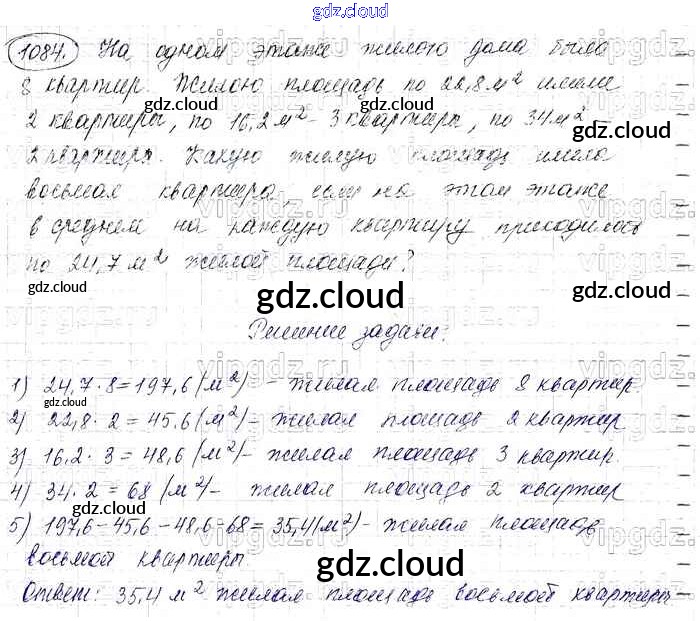 gdz.cloud
1084. На одном этаже жилого дома было
8 квартир. Жилою площадь по 22,8 м² имели
gdz.cloud gdz.cloud
2 квартиры, по 16,2 м² - 3 квартиры, по 34 м² -
gdz.cloud
2 квартиры. Какую жилую площадь имела
восьмая квартира, если на этом этаже
в среднем на каждую квартиру приходилось
по 24,7 м² жилой площади?
gdz.cloud gdz.cloud gdz.cloud
Решение задачи:
1) 24,7 · 8 = 197,6 (м²) - жилая площадь 8 квартир.
gdz.cloud
2) 22,8 · 2 = 45,6 (м²) - жилая площадь 2 квартир
3) 16,2 · 3 = 48,6 (м²) - жилая площадь 3 квартир.
4) 34 · 2 = 68 (м²) - жилая площадь 2 квартир
gdz.cloud gdz.cloud
5) 197,6 - 45,6 - 48,6 - 68 = 35,4 (м²) - жилая площадь
восьмой квартиры.
gdz.cloud
Ответ: 35,4 м² жилая площадь восьмой квартиры